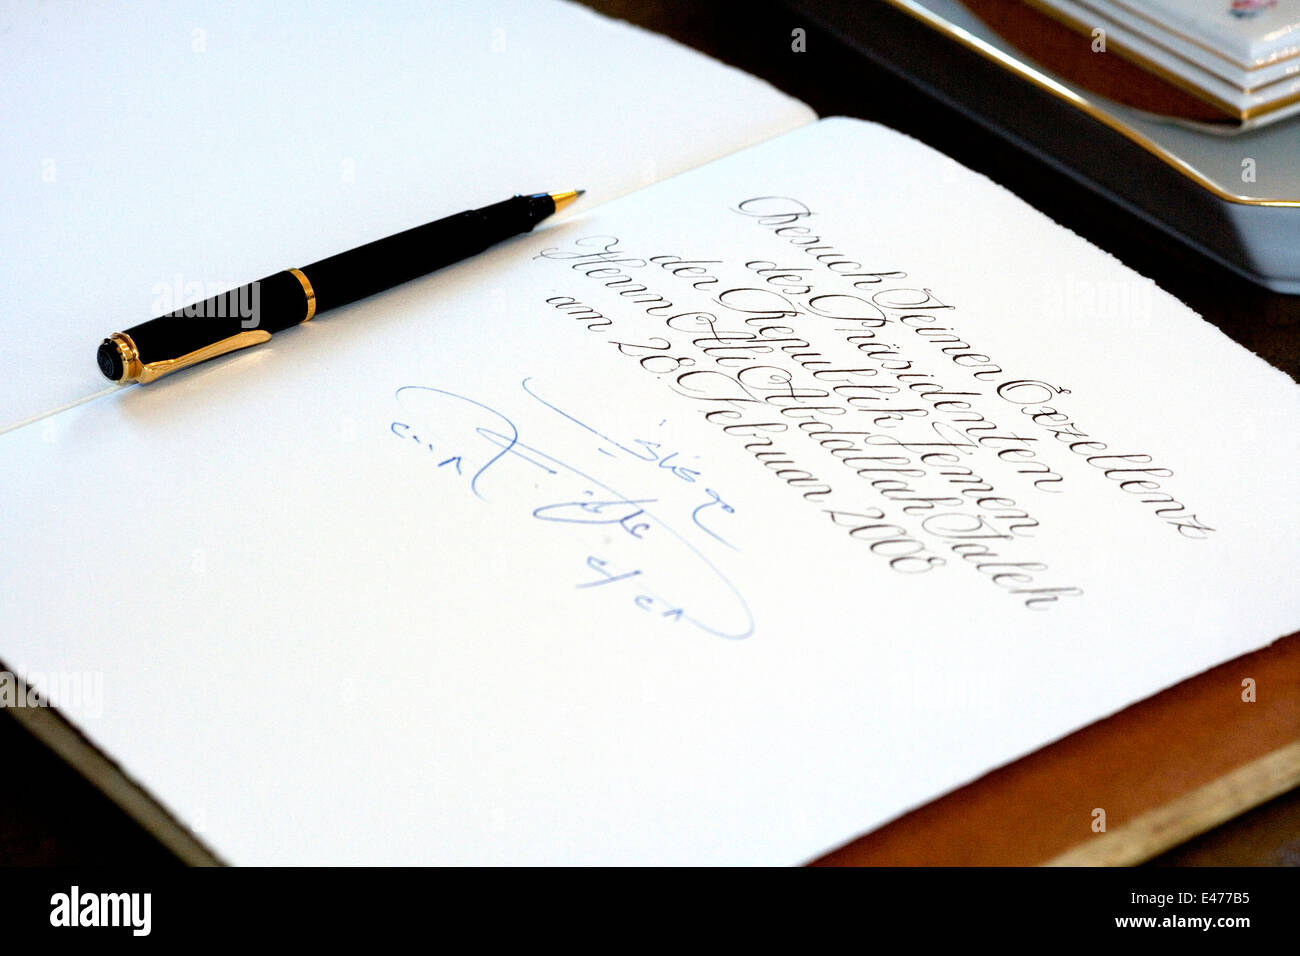 Besuch Seiner Exzellenz
des Präsidenten
der Republik Jemen
Herrn Ali Abdallah Saleh
am 28 Februar 2008
alamy
Image ID: E477B5
www.alamy.com